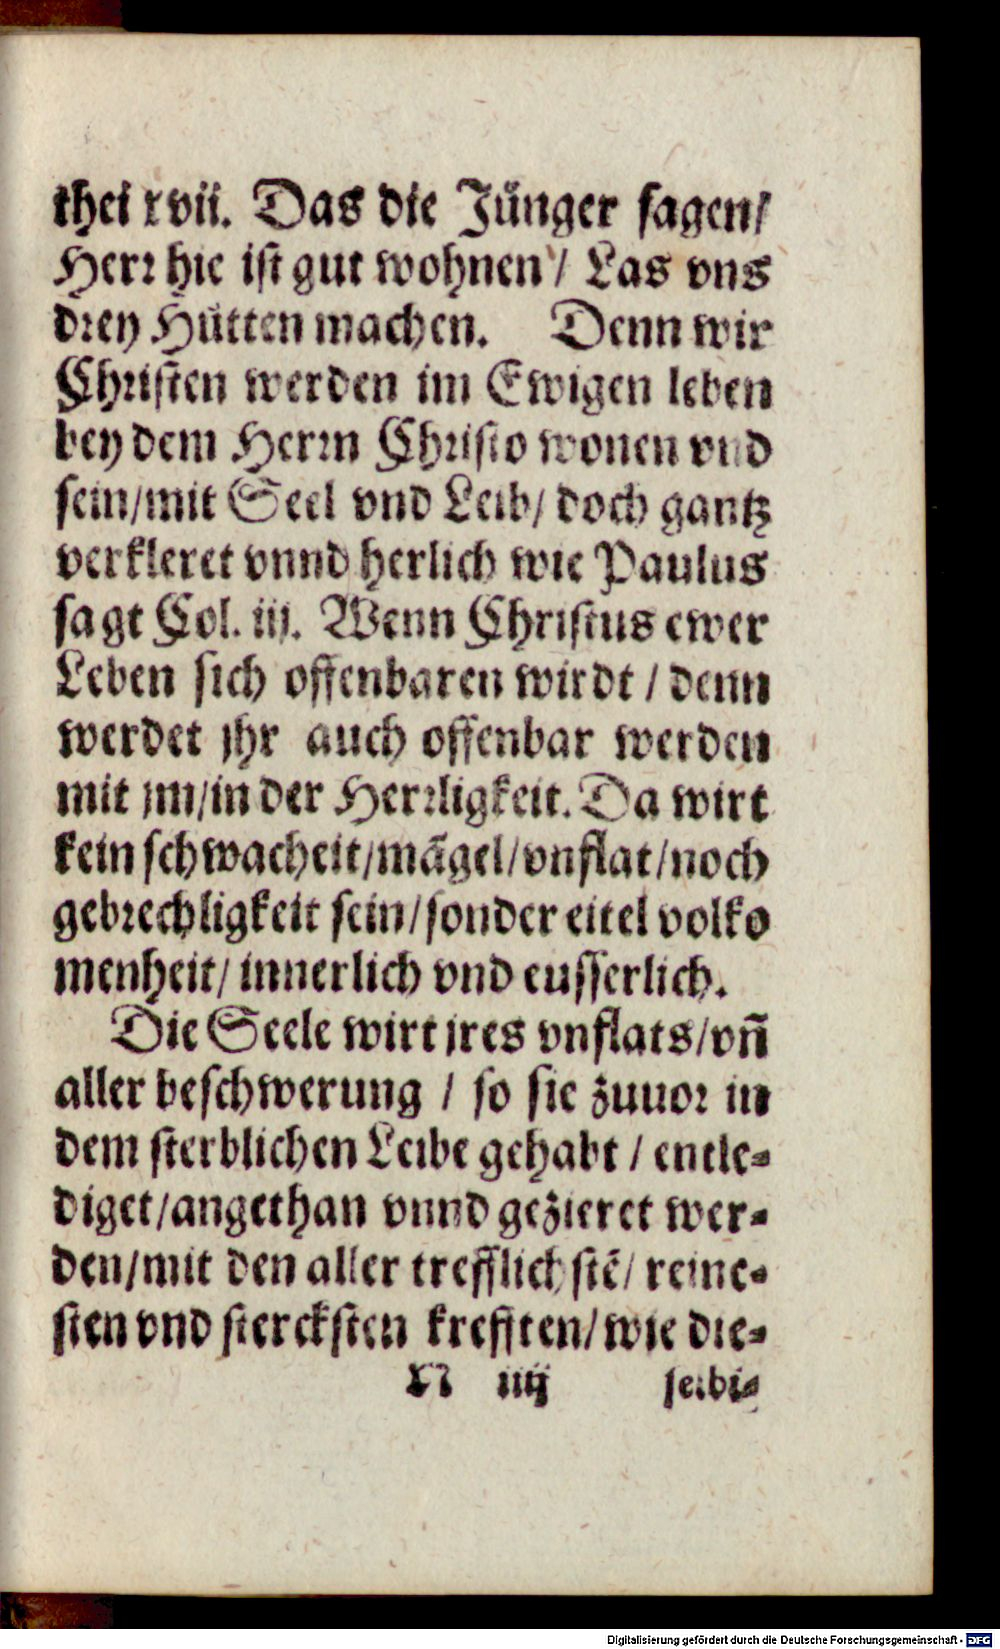 thei xvii. Das die Jünger sagen/
Herr hie ist gut wohnen / Las vns
drey Hütten machen. Denn wir
Christen werden im Ewigen leben
bey dem Herrn Christo wonen vnd
sein/mit Seel vnd Leib/ doch gantz
verkleret vnnd herlich wie Paulus
sagt Col. iij. Wenn Christus ewer
Leben sich offenbaren wirdt / denn
werdet jhr auch offenbar werden
mit jm/in der Herrligkeit. Da wirt
kein schwacheit/mãgel/vnflat/noch
gebrechligkeit sein/sonder eitel volko
menheit/ innerlich vnd eusserlich.
Die Seele wirt jres vnflats/vñ
aller beschwerung / so sie zuuor in
dem sterblichen Leibe gehabt / entle-
diget/angethan vnnd gezieret wer-
den/mit den aller trefflichstẽ/ reine-
sten vnd stercksten krefften/wie die-
N iiij selbi-
Digitalisierung gefördert durch die Deutsche Forschungsgemeinschaft - DFG